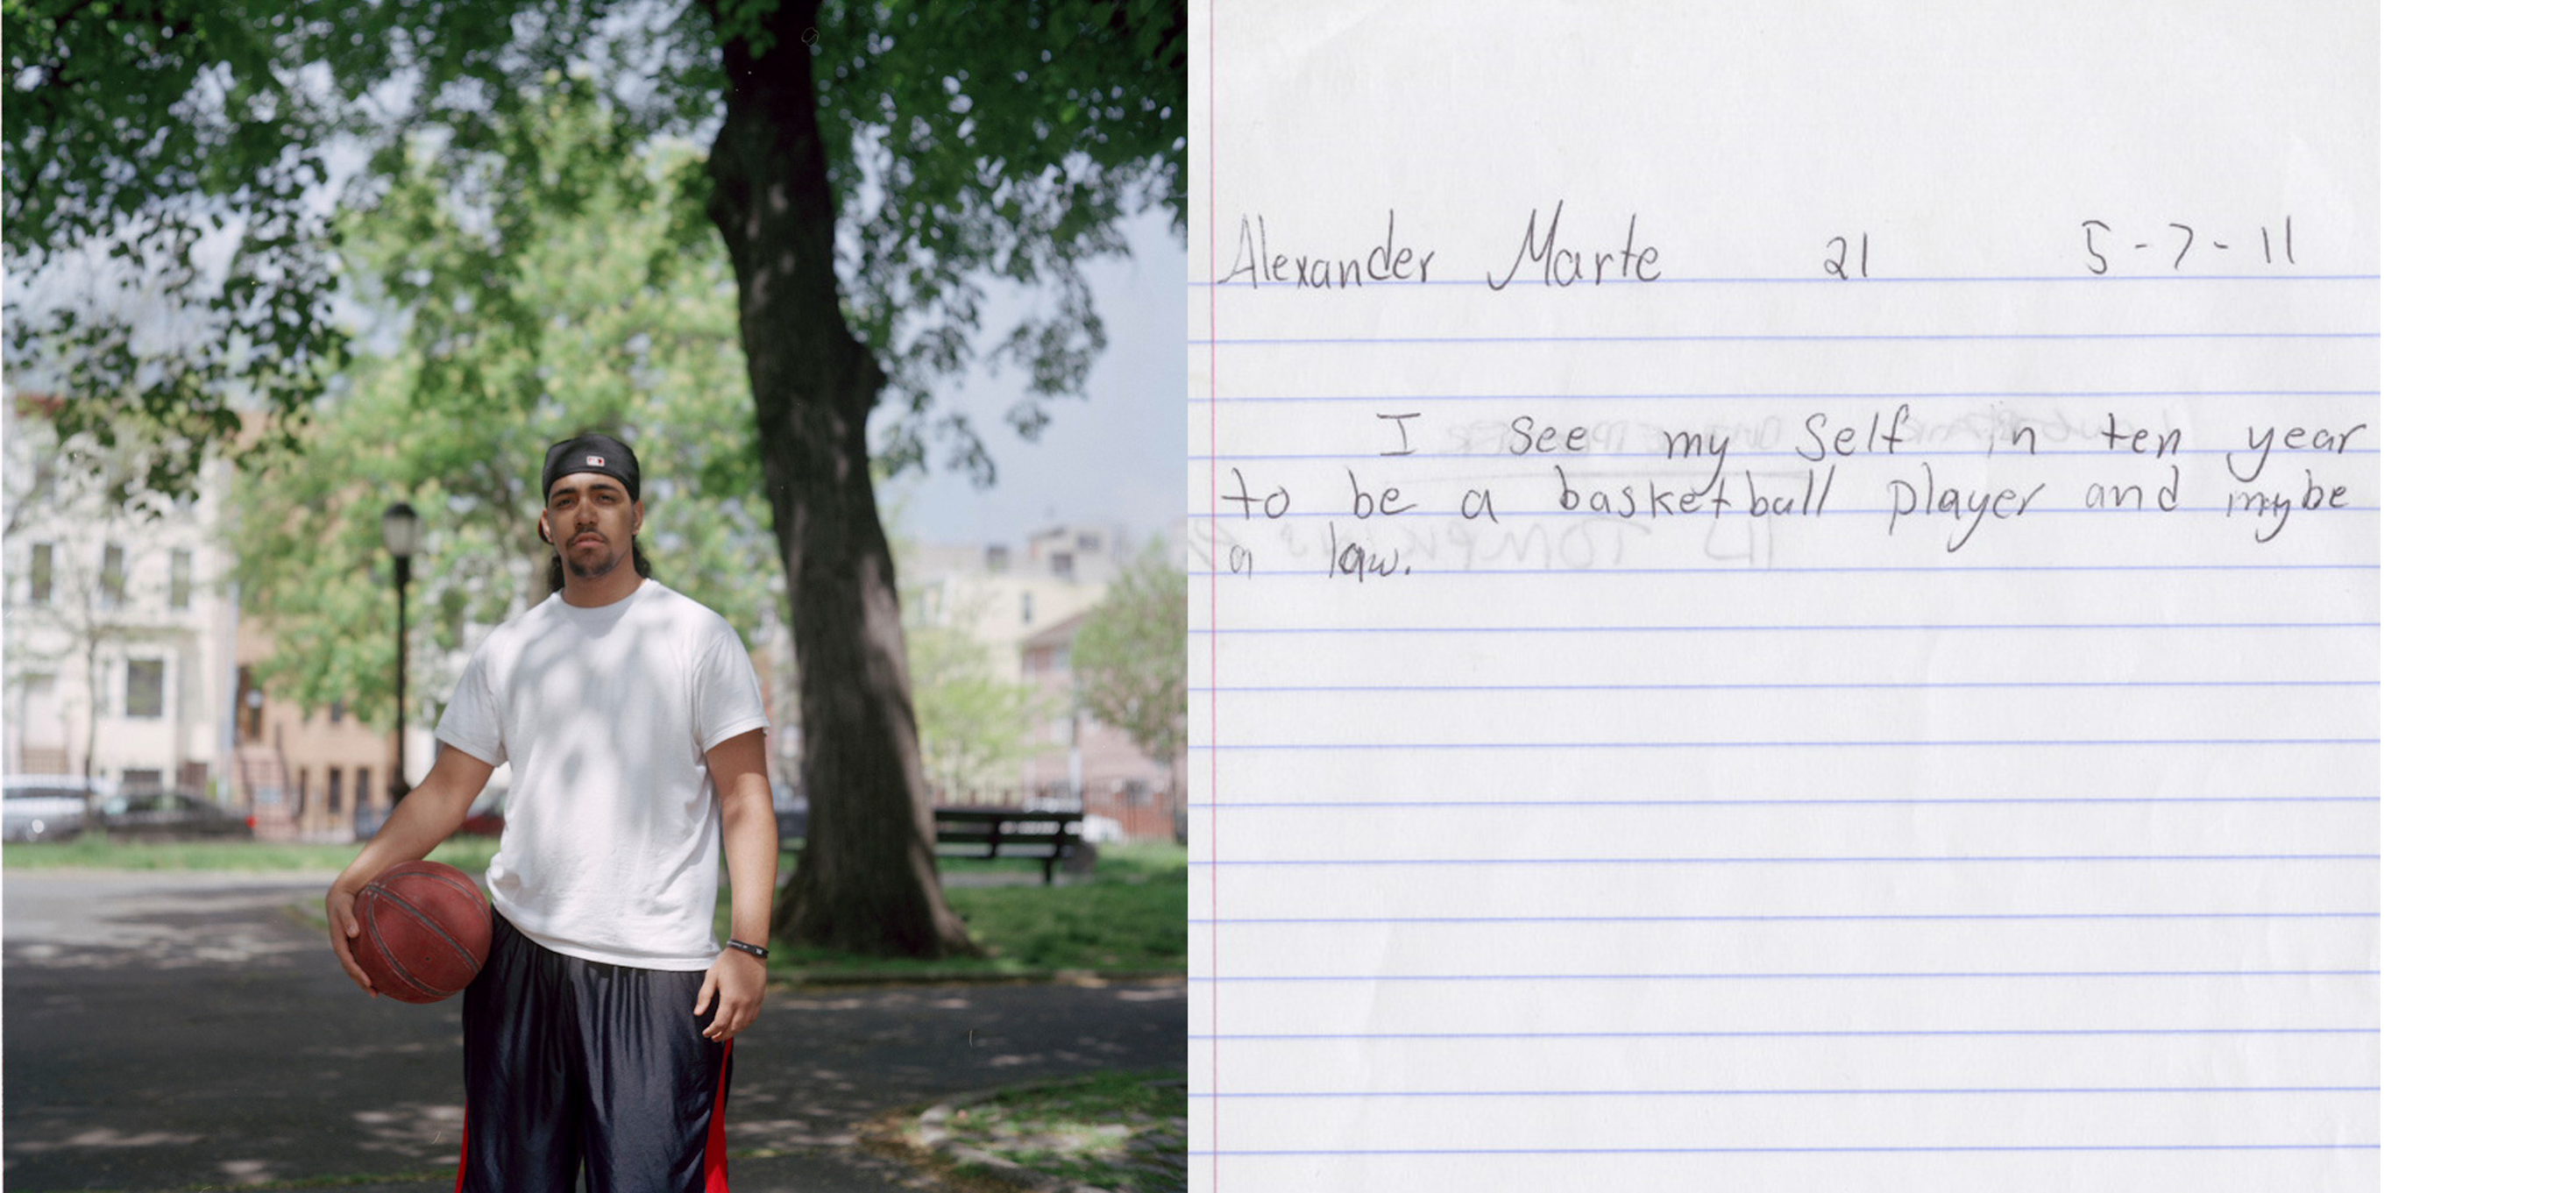 Alexander Marte 21 5-7-11
I see my self in ten year
to be a basketball player and mybe
a law.